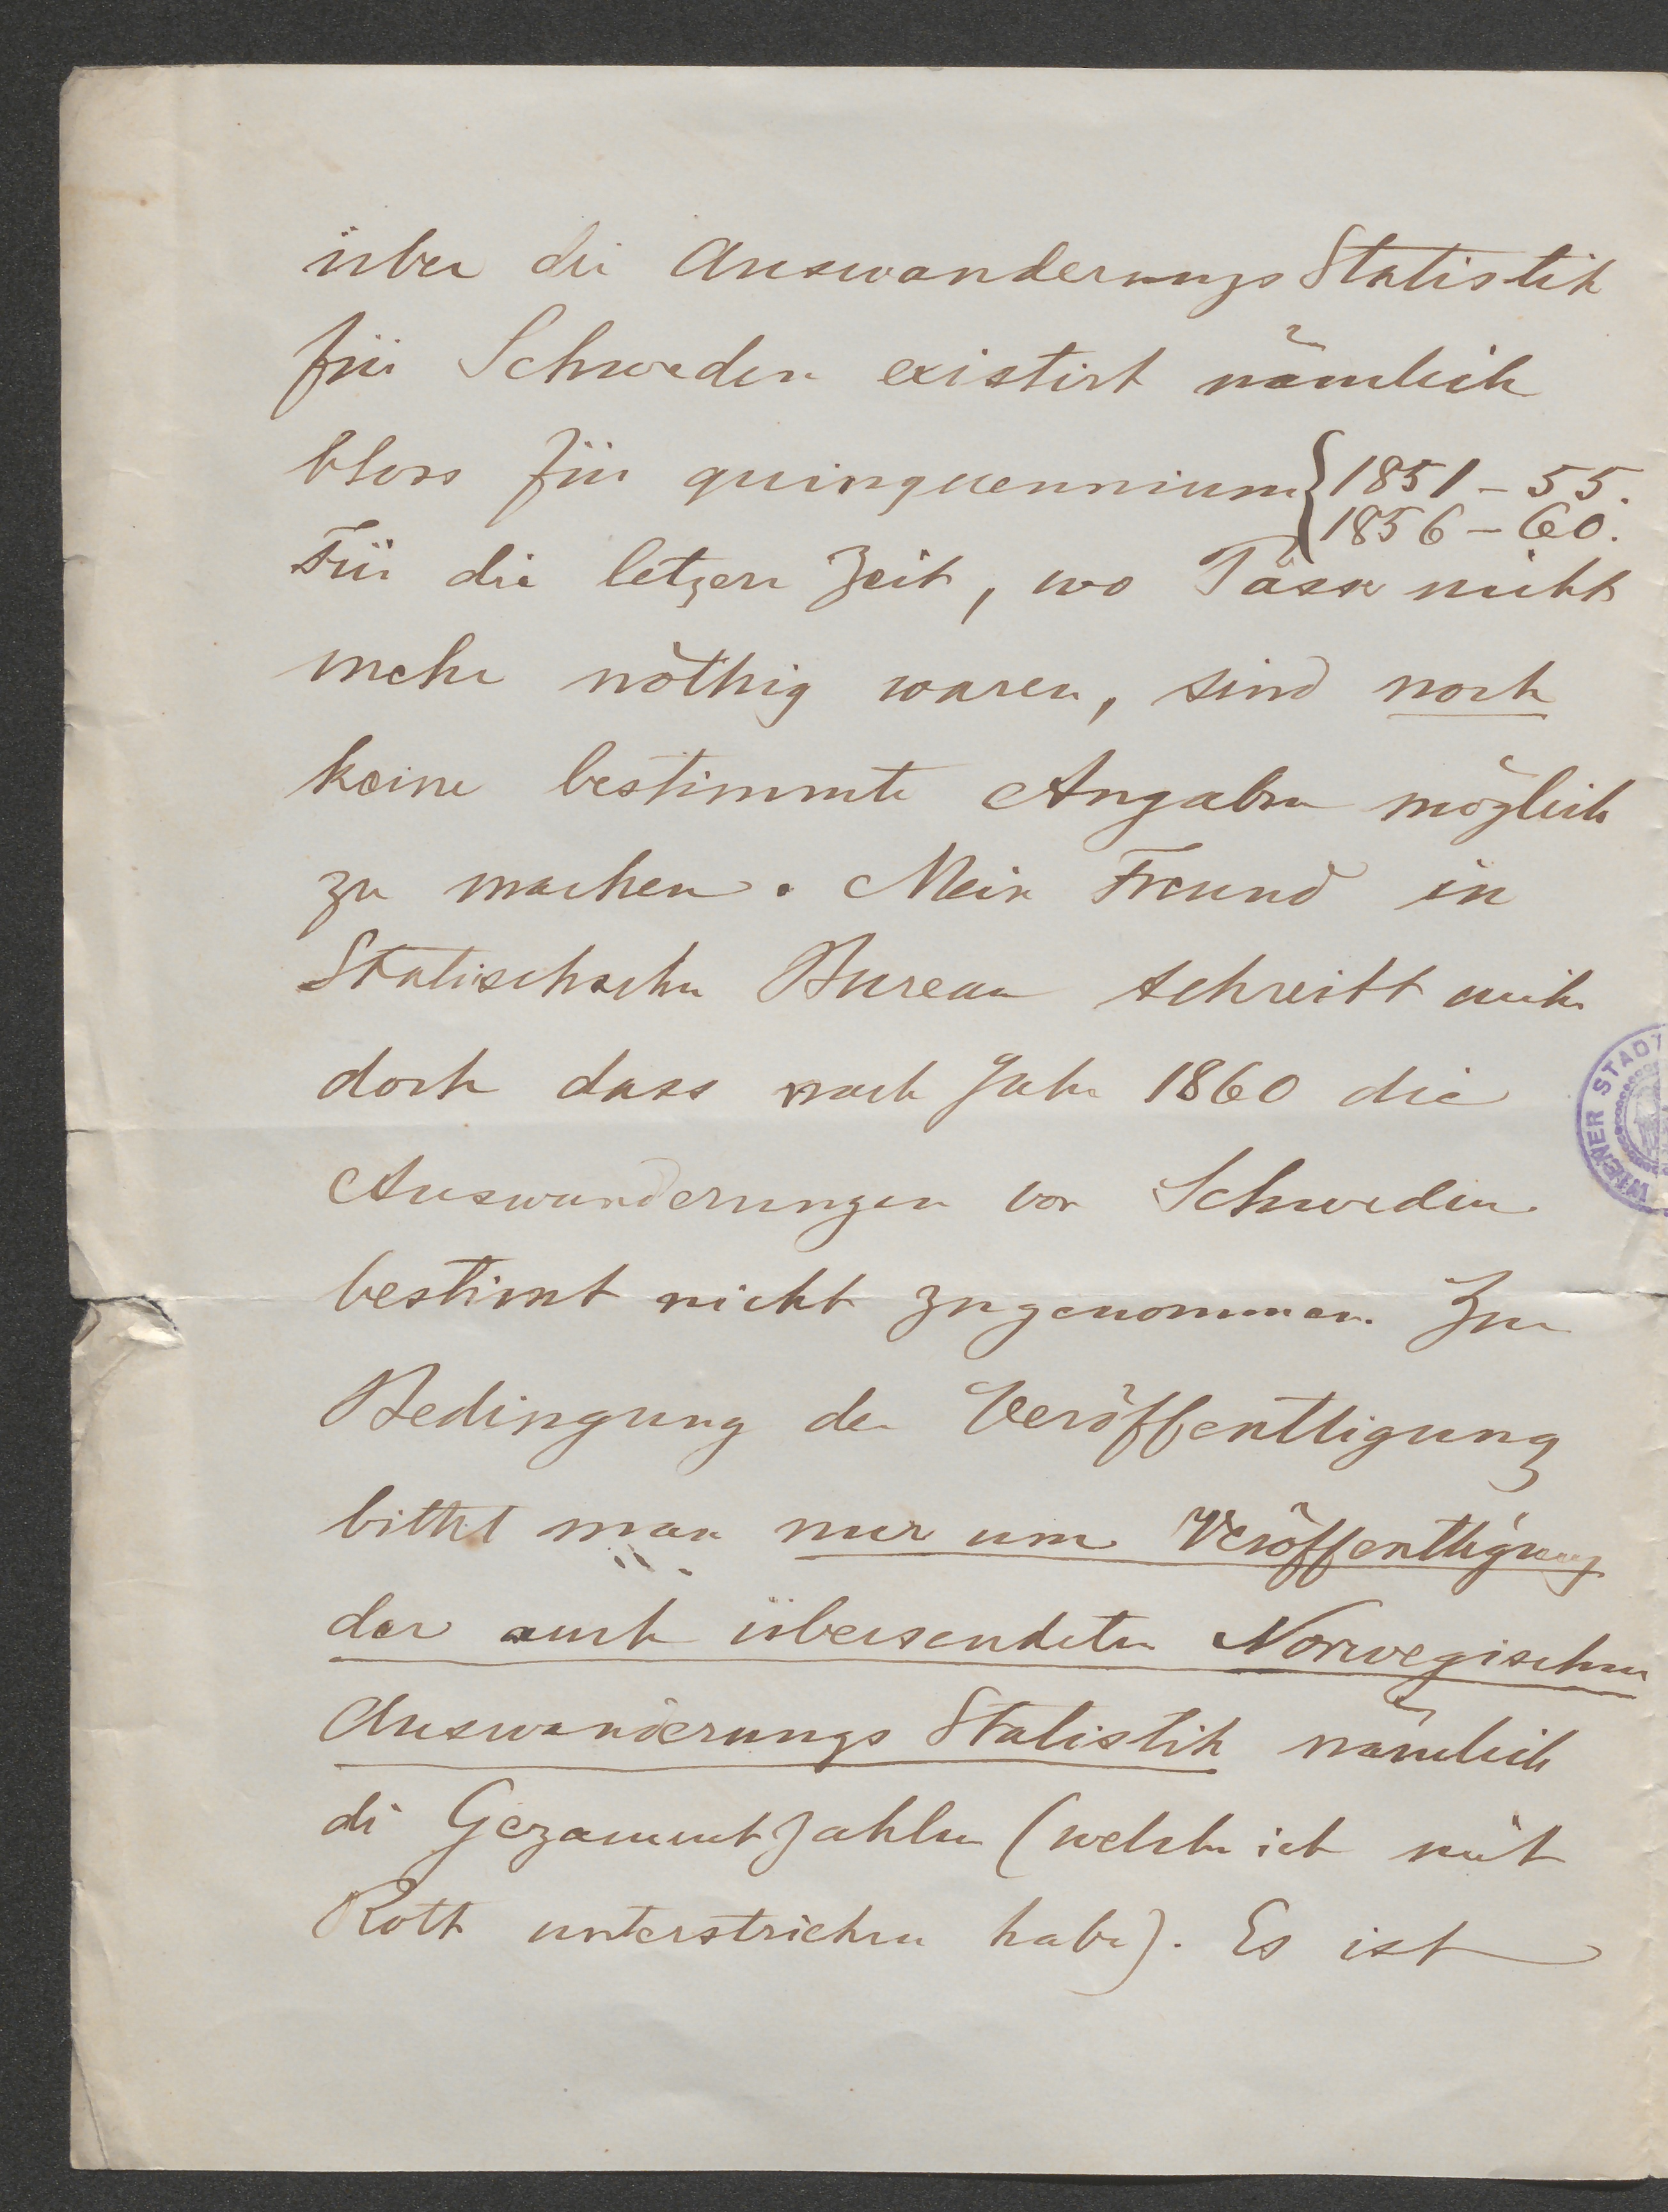 über die Auswanderungs Statistik
für Schweden existirt nämlich
bloss für quinquennium { 1851 – 55.
1856 – 60.
Für die letzen Zeit, wo Pässe nicht
mehr nöthig waren, sind noch
keine bestimmte Angaben möglich
zu machen. Mein Freund in
Statischschen Bureau schreibt mich
doch dass nach Jahr 1860 die
Auswanderungen von Schweden
bestimt nicht zugenommen. Zur
Bedingung der Veröffentligung
bittet man nur um Veröffentligung
der auch übersendeten Norwegischen
Auswanderungs Statistik nämlich
di Gezammtzahlen (welche ich mit
Roth unterstrichen habe). Es ist
WIENER STADT